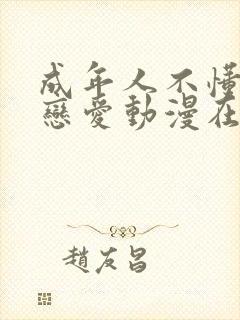 成年人不懂
戀愛動漫在
趙友昌